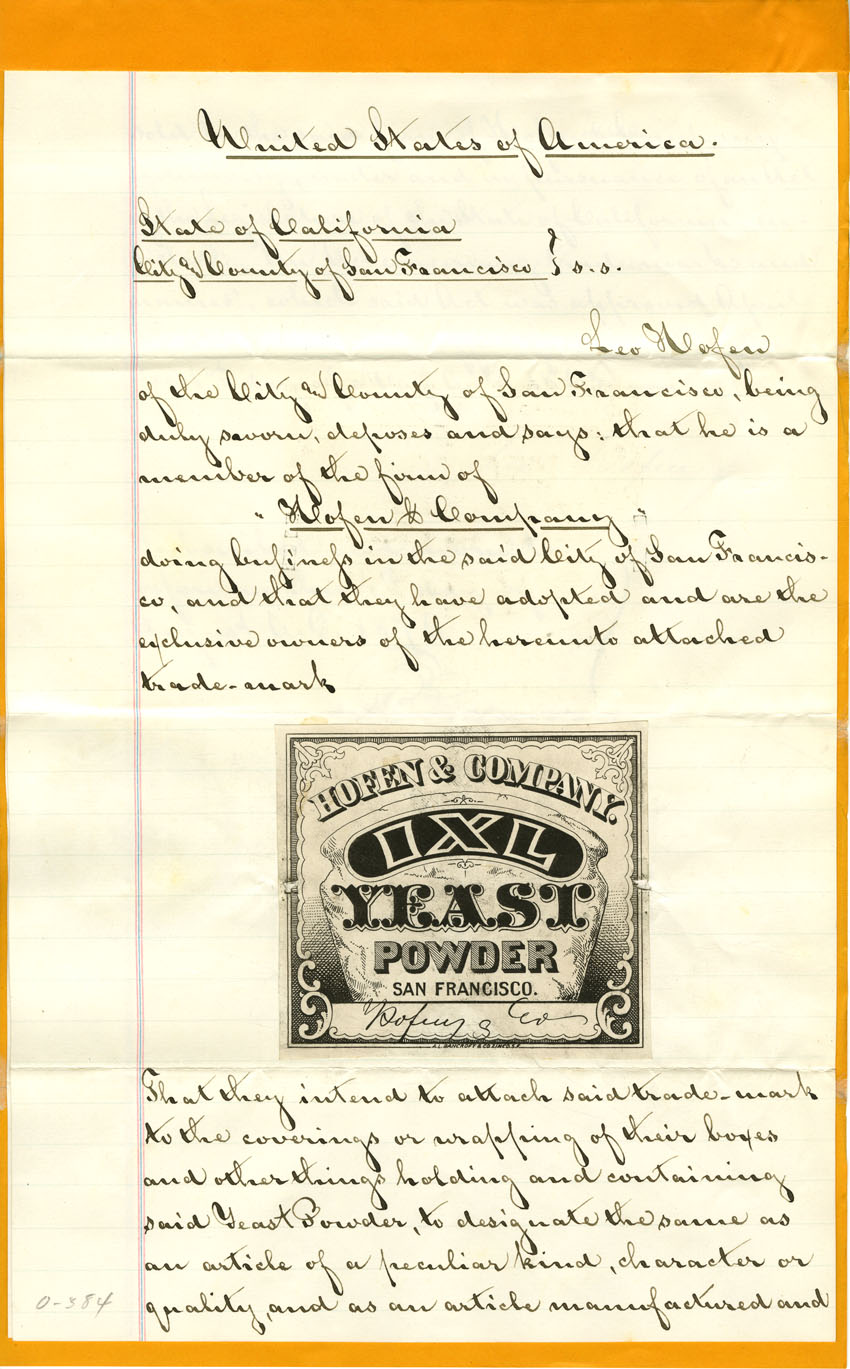 United States of America.
State of California
City & County of San Francisco } s.s.
Leo Hofen
of the City & County of San Francisco, being
duly sworn, deposes and says: that he is a
member of the firm of
"Hofen & Company"
doing business in the said City of San Francis-
co, and that they have adopted and are the
exclusive owners of the hereunto attached
trade-mark
HOFEN & COMPANY.
IXL
YEAST
POWDER
SAN FRANCISCO.
Hofen & Co
A.L. BANCROFT & CO. LITH. S.F.
That they intend to attach said trade-mark
to the coverings or wrapping of their boxes
and other things holding and containing
said Yeast Powder, to designate the same as
an article of a peculiar kind, character or
quality, and as an article manufactured and
0-384